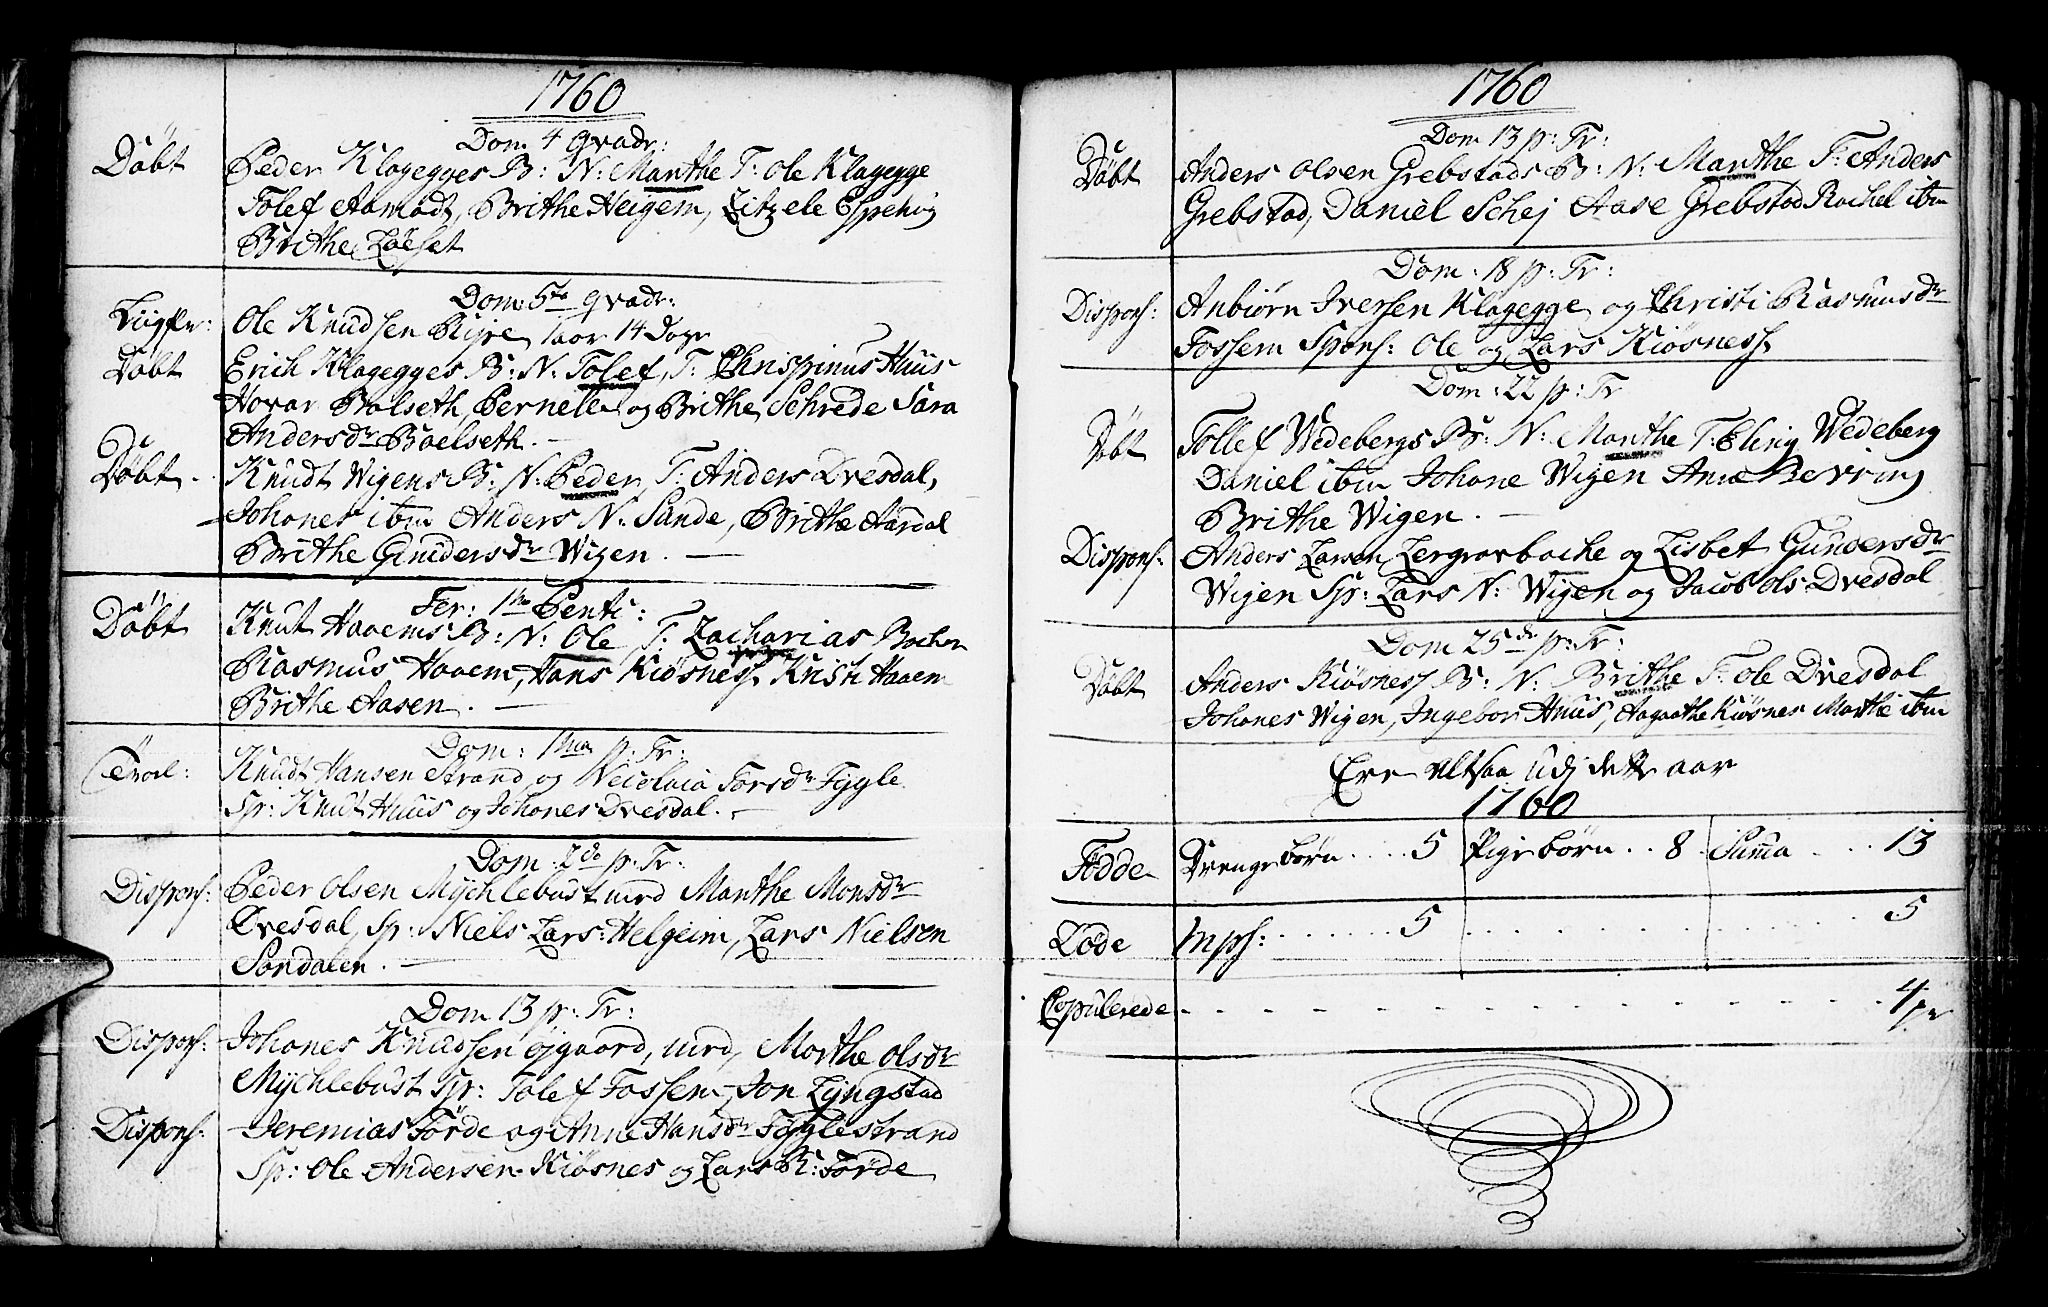 1760
Dom 4 qvadr:
Döbt Peder Klageggesß B: N: Marthe T: Ole Klagegge
Tolef Aamodt, Brithe Heigem, Litzele Espehøj
Brithe Löeset
Dom: 5ta qvadr:
Ole Knudsen Ripe 14 Dage
Döbt Erich Klagegges B: N: Tolef, T: Chrispinus Huus
Hovar Bolseth, Pernelle og Brithe Schrede Sara
Andersdr Boelseth. —
Döbt. Knudt Wigens B: N: Peder, T: Anders Dvesdal,
Johanes ibm Anders N: Sande, Brithe Aardal
Brithe Gundersdr Wigen. —
Fer: 1ma Pentc:
Döbt Knut Haaems B: N: Ole T: Zacharias
Rasmus Haaem, Hans Kiösness Kristi Haaem
Brithe Aasen. —
Dom: 1ma p: Tr:
Knudt Hansen Strand og Nicolaia Torsdr Fygle.
Sp: Knut Huus og Johanes Dvesdal. -
Dom: 2da p: Tr:
Dispons: Peder Olsen Mychlebust med Marthe Monsdr
Dvesdal, Sp: Niels Lars: Helgeim, Lars Nielsen
Söndalen. —
Dom 13 p: Tr:
Dispons: Johanes Knudsen øjgaard, med, Morthe olsdr
Mychlebust Sp: Tolef Fossem, Jon Lyngstad
Dispons: Jeremias Förde og Anne Hansdr Fyglestrand
Sp: Ole Andersen Kiösnes og Lars R: Förde
1760
Dom 13 p: Tr:
Döbt Anders Olsen Grebstads B: N: Marthe T: Anders
Grebstad, Daniel Schej Aase Grebstad Rachel ibm
Dom: 18 p: Tr:
Dispons: Anbiörn Iversen Klagegge og Christi Rasmusdr
Fossem Spons: Ole og Lars Kiösness
Dom: 22 p: Tr
Döbt Tollef Wedebergs B: N: Marthe T: Elling Wedeberg
Daniel ibm Johane Wigen Anne Bevring
Brithe Wigen. —
Dispons: Anders Larsen Lergrovbacke og Lisbet Gundersdr
Wigen Sp: Lars N: Wigen og Jacob Ols Dvesdal
Dom 25de p: Tr:
Döbt Anders Kiösness B: N: Brithe T: Ole Dvesdal
Johanes Wigen, Ingebor Huus, Aagaathe Kiösnes Marthe ibm
Ere altsaa udj dette aar
1760
Födde Drengebörn .... 5 Pigebörn .. 8 Suma .... 13
Döde Mps: ...... 5 ........ 5
Copulerede - - - - - - - - - 4 pr